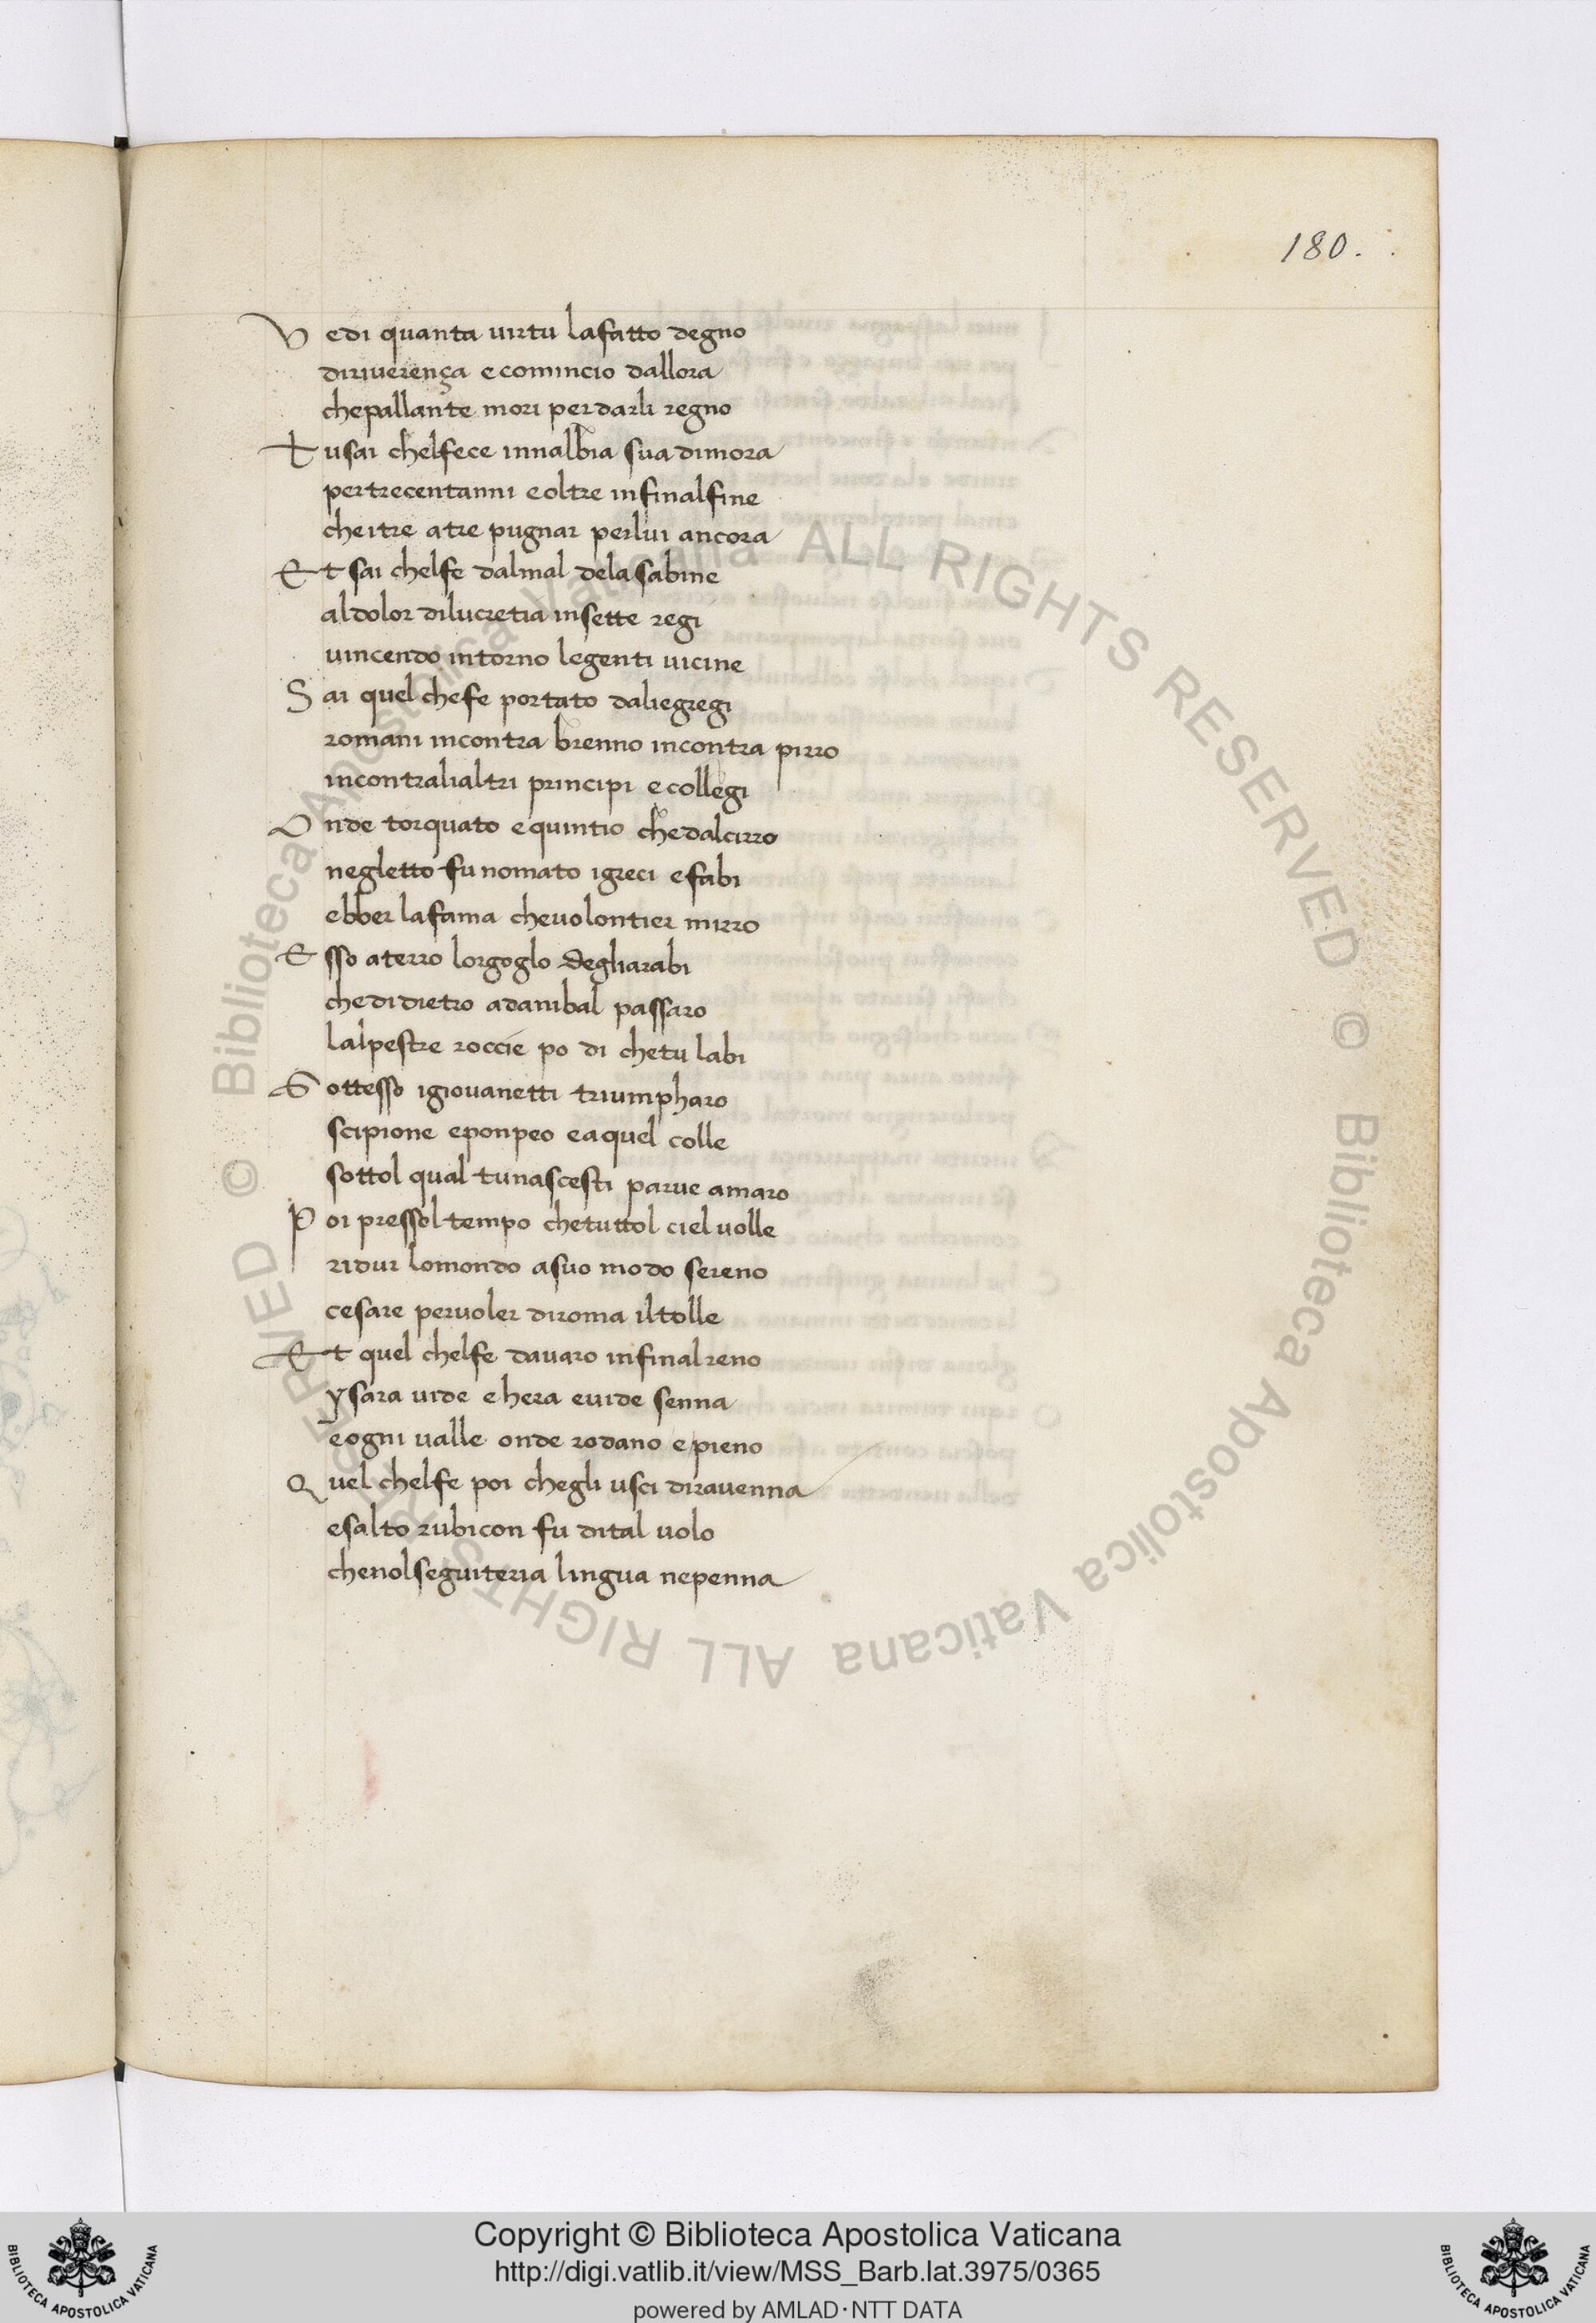 180.
Vedi quanta uirtu lafatto degno
diriuerença ecomincio dallora
chepallante mori perdarli regno
Tusai chelfece innalbia sua dimora
pertrecentanni eoltre infinalfine
cheitre atre pugnar perlui ancora
Et sai chelfe dalmal dela sabine
aldolor dilucretia insette regi
uincendo intorno legenti uicine
Sai quel chefe portato daliegregi
romani incontra brenno incontra pirro
incontralialtri principi ecollegi
Onde torquato equintio chedalcirro
negletto fu nomato igreci efabi
ebber lafama cheuolontier mirro
Esso aterro lorgoglo degliarabi
chedidietro adanibal passaro
lalpestre roccie po di chetu labi
Sottesso igiouanetti triumpharo
scipione eponpeo eaquel colle
sottol qual tunascesti parue amaro
Poi pressol tempo chetuttol ciel uolle
ridur lomondo asuo modo sereno
cesare peruoler diroma iltolle
Et quel chelfe dauaro infinalreno
ysara uide ehera euide senna
eogni ualle onde rodano epieno
Quel chelfe poi chegli usci dirauenna
esalto rubicon fu dital uolo
chenolseguiteria lingua nepenna
© Biblioteca Apostolica Vaticana ALL RIGHTS RESERVED © Biblioteca Apostolica Vaticana ALL RIGHTS RESERVED
Copyright © Biblioteca Apostolica Vaticana
http://digi.vatlib.it/view/MSS_Barb.lat.3975/0365
powered by AMLAD·NTT DATA
BIBLIOTECA APOSTOLICA VATICANA
BIBLIOTECA APOSTOLICA VATICANA